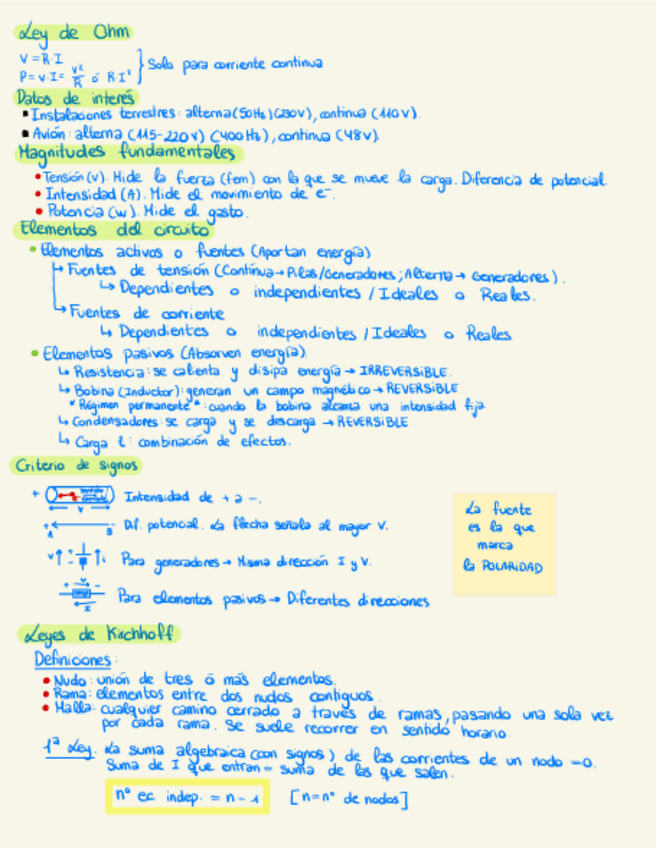 Ley de Ohm
V = R·I
P = V·I = V²/R ó R·I² } Solo para corriente continua
Datos de interés
• Instalaciones terrestres: alterna (50Hz) (230V), continua (110V).
• Avión: alterna (115-220V) (400Hz), continua (48V).
Magnitudes fundamentales
• Tensión (V). Mide la fuerza (fem) con la que se mueve la carga. Diferencia de potencial.
• Intensidad (A). Mide el movimiento de e⁻.
• Potencia (W). Mide el gasto.
Elementos del circuito
• Elementos activos o fuentes (Aportan energía)
↳ Fuentes de tensión (Continua → Pilas/Generadores; Alterna → Generadores).
↳ Dependientes o independientes / Ideales o Reales.
↳ Fuentes de corriente
↳ Dependientes o independientes / Ideales o Reales
• Elementos pasivos (Absorven energía).
↳ Resistencia: se calienta y disipa energía → IRREVERSIBLE.
↳ Bobina (Inductor): generan un campo magnético → REVERSIBLE
"Régimen permanente": cuando la bobina alcanza una intensidad fija
↳ Condensadores: se carga y se descarga → REVERSIBLE
↳ Carga : combinación de efectos.
Criterio de signos
+ - Intensidad de + a -.
V
+ - Dif. potencial. La flecha señala al mayor V.
A B
V I Para generadores → Misma dirección I y V.
V
Para elementos pasivos → Diferentes direcciones
I
La fuente
es la que
marca
la POLARIDAD
Leyes de Kirchhoff
Definiciones:
• Nudo: unión de tres o más elementos.
• Rama: elementos entre dos nudos contiguos.
• Malla: cualquier camino cerrado a través de ramas, pasando una sola vez
por cada rama. Se suele recorrer en sentido horario.
1ª Ley. La suma algebraica (con signos) de las corrientes de un nodo = 0.
Suma de I que entran = suma de las que salen.
nº ec indep. = n - 1 [n = nº de nodos]